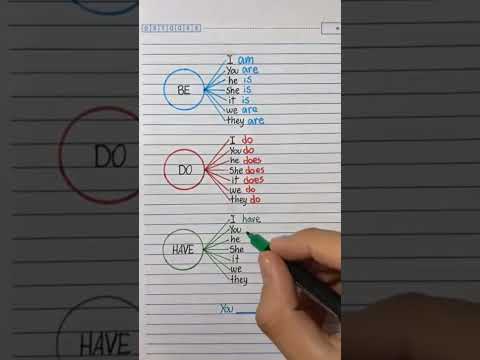 BE
I am
You are
he is
She is
it is
we are
they are
DO
I do
You do
he does
She does
it does
we do
they do
HAVE
I have
You
he
She
it
we
they
You
DO
HAVE